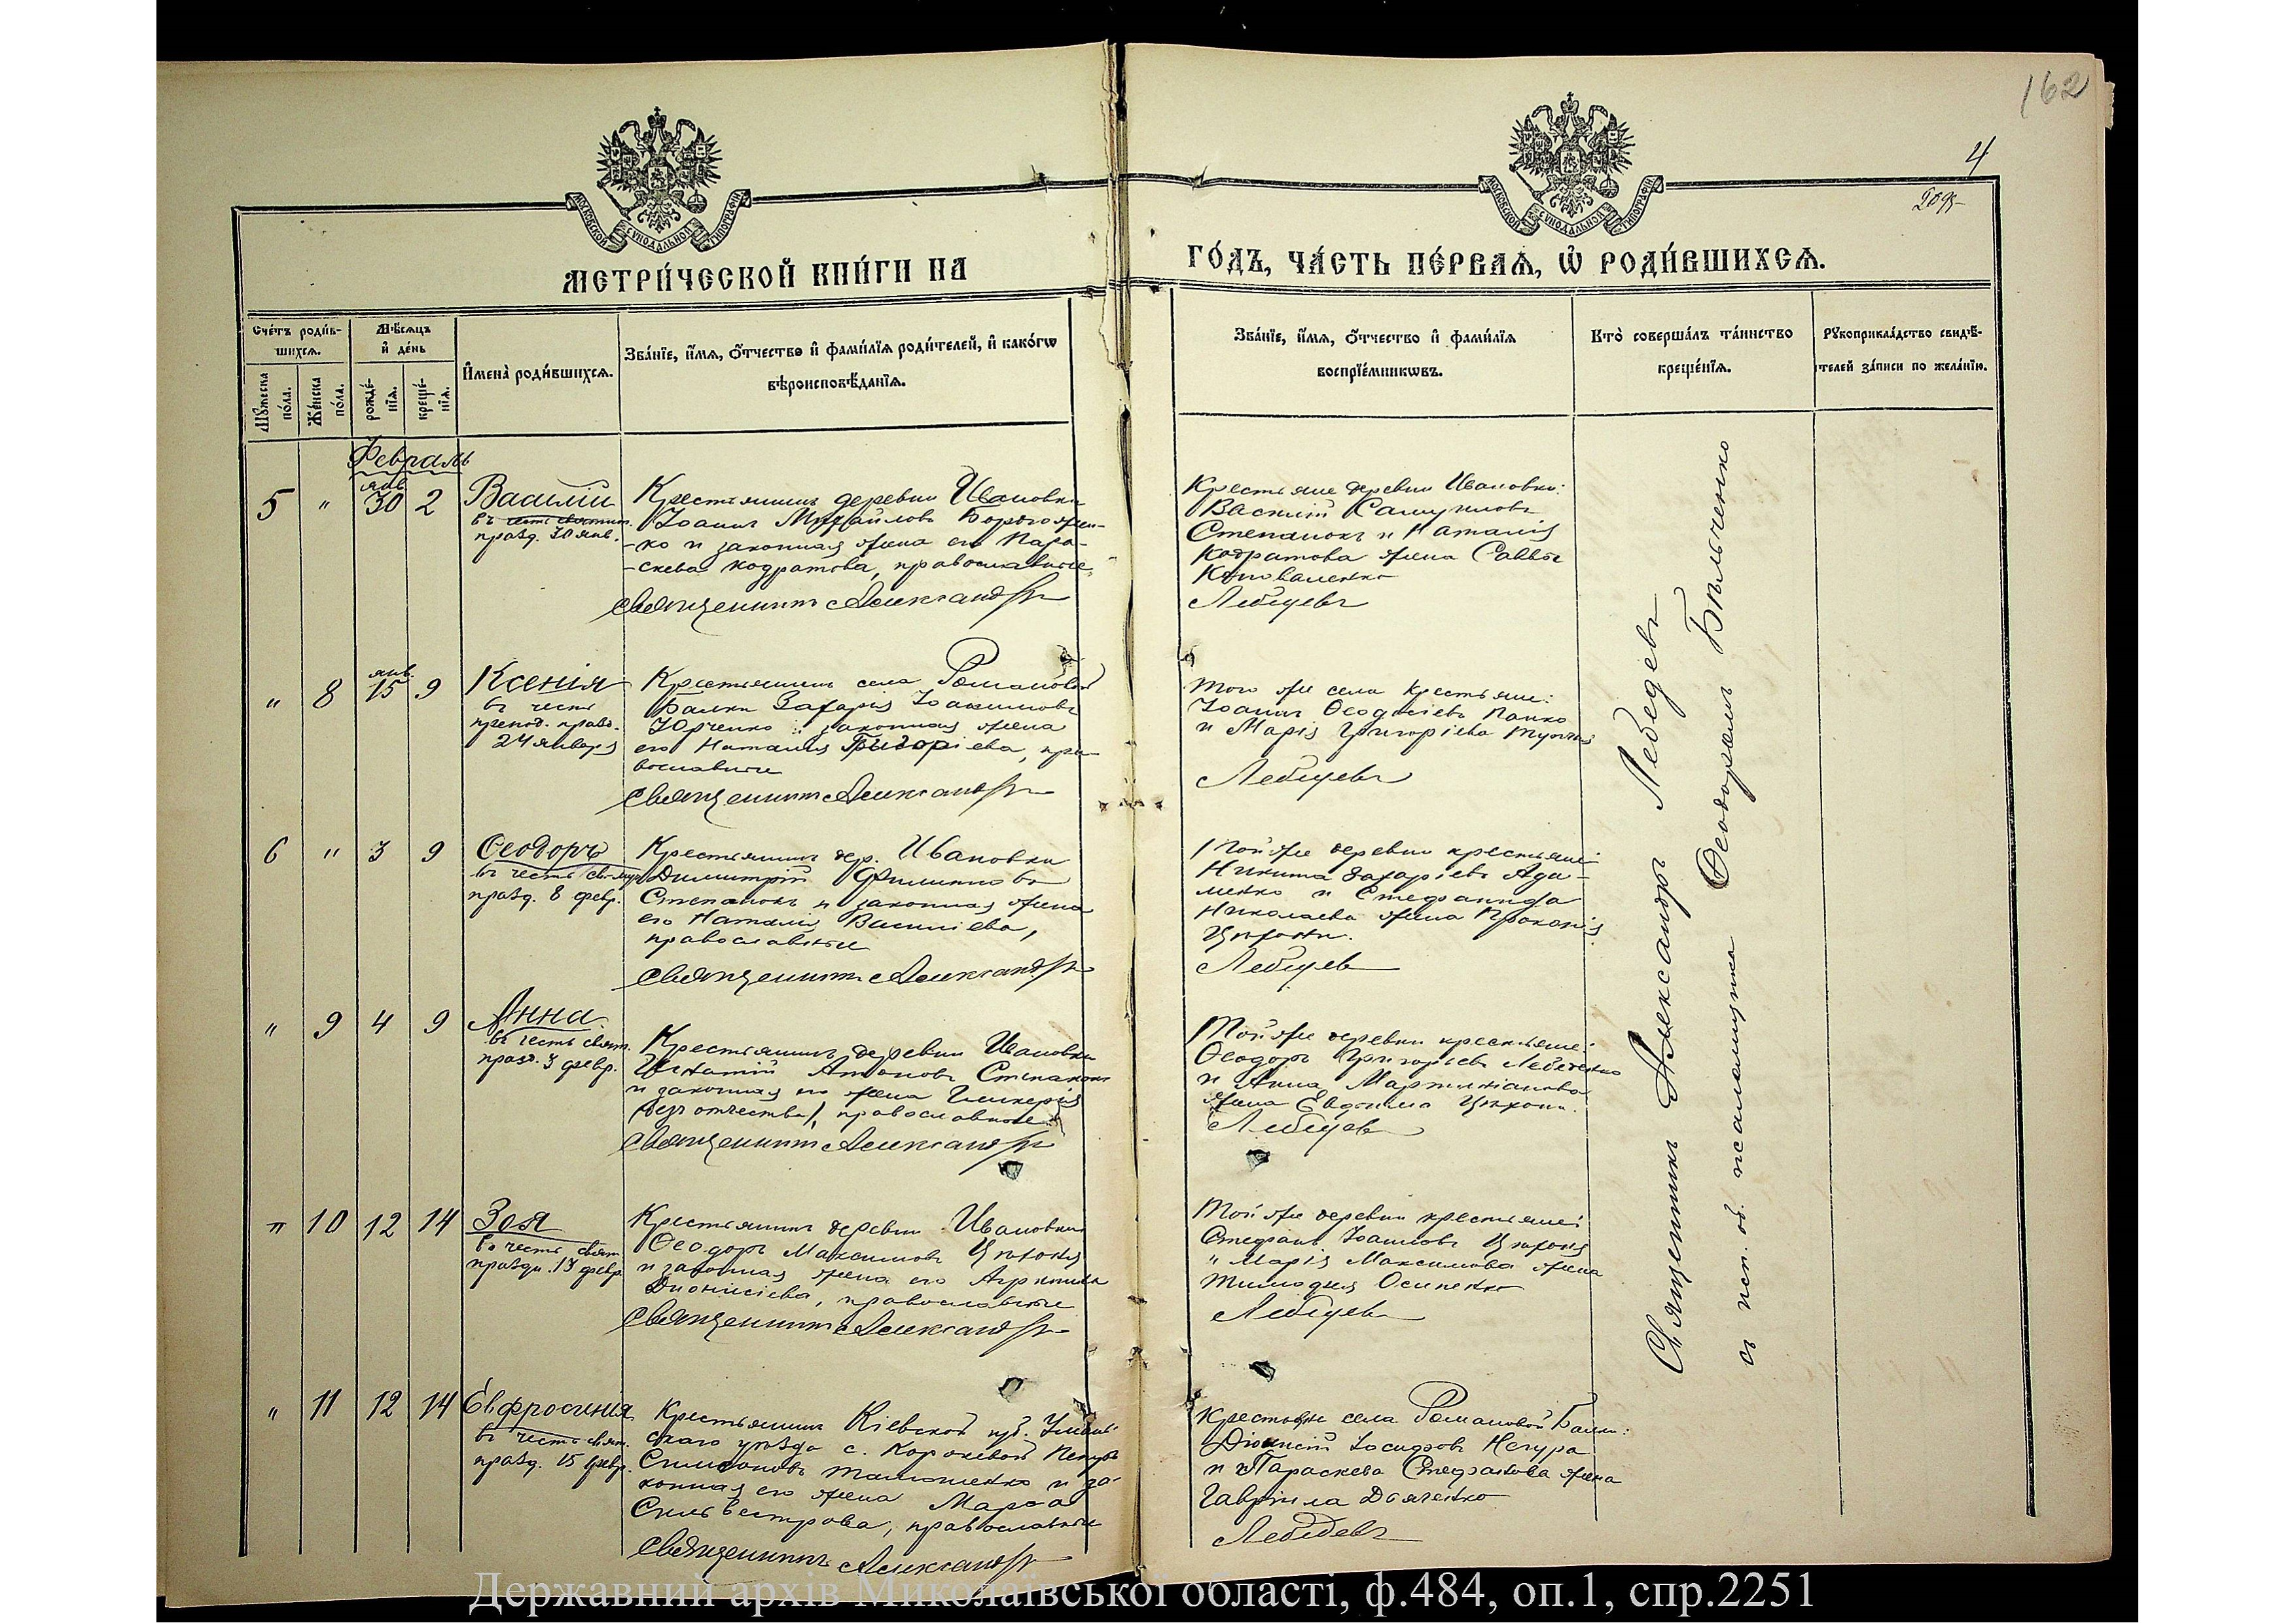 162
4
МОСКОВСКОЙ СѴНОДАЛЬНОЙ ТИПОГРАФІИ
МОСКОВСКОЙ СѴНОДАЛЬНОЙ ТИПОГРАФІИ
МЕТРИ́ЧЕСКОЙ КНИ́ГИ НА
ГО́ДЪ, ЧА́СТЬ ПЕ́РВАѦ, Ѡ҆ РОДИ́ВШИХСѦ.
Сче́тъ роди́в-
шихсѧ.
Мꙋ́жеска по́ла.
Же́нска по́ла.
Мѣ́сѧцъ
и҆ де́нь
рожде́-
нїѧ.
креще́-
нїѧ.
И҆мена̀ роди́вшихсѧ.
Зва́нїе, и҆́мѧ, ѻ҆́тчество и҆ фами́лїѧ роди́телей, и҆ како́гѡ
вѣроисповѣ́данїѧ.
Зва́нїе, и҆́мѧ, ѻ҆́тчество и҆ фами́лїѧ
воспрїе́мникѡвъ.
Кто̀ соверша́лъ та́инство
креще́нїѧ.
Рꙋкоприкла́дство свидѣ́-
телей за́писи по жела́нїю.
Февраль
5 " янв 30 2
Василій
въ честь святит.
празд. 30 янв.
Крестьянинъ деревни Ивановки
Іоаннъ Михайловъ
-ко и законная жена его Пара-
-скева Кодратова, православные
Священникъ Александръ
Крестьяне деревни Ивановки:
Василій Самуиловъ
Степанокъ и Наталія
Кодратова жена Саввы
Коноваленко
Лебедевъ
" 8 янв. 15 9
Ксенія
въ честь
препод. празд.
24 января
Крестьянинъ села Романовой
Балки Захарія Іоакимовъ
Юрченко и законная жена
его Наталія, пра-
вославные
Священникъ Александръ
Того же села крестьяне:
Іоаннъ Ѳеодосіевъ Панко
и Марія Григоріева
Лебедевъ
6 " 3 9
Ѳеодоръ
въ честь св.
празд. 8 февр.
Крестьянинъ дер. Ивановки
Димитрій Филипповъ
Степанокъ и законная жена
его Наталія Василіева,
православные
Священникъ Александръ
Той же деревни крестьяне:
Никита Захаріевъ Ада-
менко и Стефанида
Николаева жена Прокопія
Цѣхони.
Лебедев
" 9 4 9
Анна
въ честь свят.
празд. 3 февр.
Крестьянинъ деревни Ивановки
Игнатій Степанокъ
и законная его жена Гликерія
(безъ отчества), православные
Священникъ Александръ
Той же деревни крестьяне:
Ѳеодоръ Григорьевъ Лебеденко
и Анна Мартиніанова
жена Евфимія Цѣхони.
Лебедев
" 10 12 14
Зоя
въ честь свят.
праздн. 13 февр.
Крестьянинъ деревни Ивановки
Ѳеодоръ Максимовъ Цѣхоня
и законная жена его Агриппина
Діонисіева, православные
Священникъ Александръ
Той же деревни крестьяне:
Стефанъ Іоанновъ Цѣхоня
и Марія Максимова жена
Тимофея Осипенко
Лебедев
" 11 12 14
Евфросинія
въ честь свят.
празд. 15 февр.
Крестьянинъ Кіевской губ. Уман-
скаго уѣзда с. Корожевой Петръ
Симеоновъ и за-
конная его жена Марѳа
Сильвестрова, православные
Священникъ Александръ
Крестьяне села Романовой Балки:
Діонисій Іосифовъ Негура
и Параскева Стефанова жена
Гавріила Дьяченко
Лебедевъ
Священникъ Александръ Лебедевъ
съ исп. об. псаломщика Ѳеодоромъ Бѣльченко
Державний архів Миколаївської області, ф.484, оп.1, спр.2251